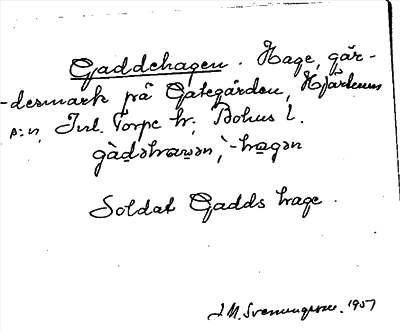 Gaddehagen. Hage, går-
-desmark på Gategården, Hjärtums
s:n, Inl. Torpe hr; Bohus l.
Soldat Gadds hage.
J. M. Svenungsson. 1957